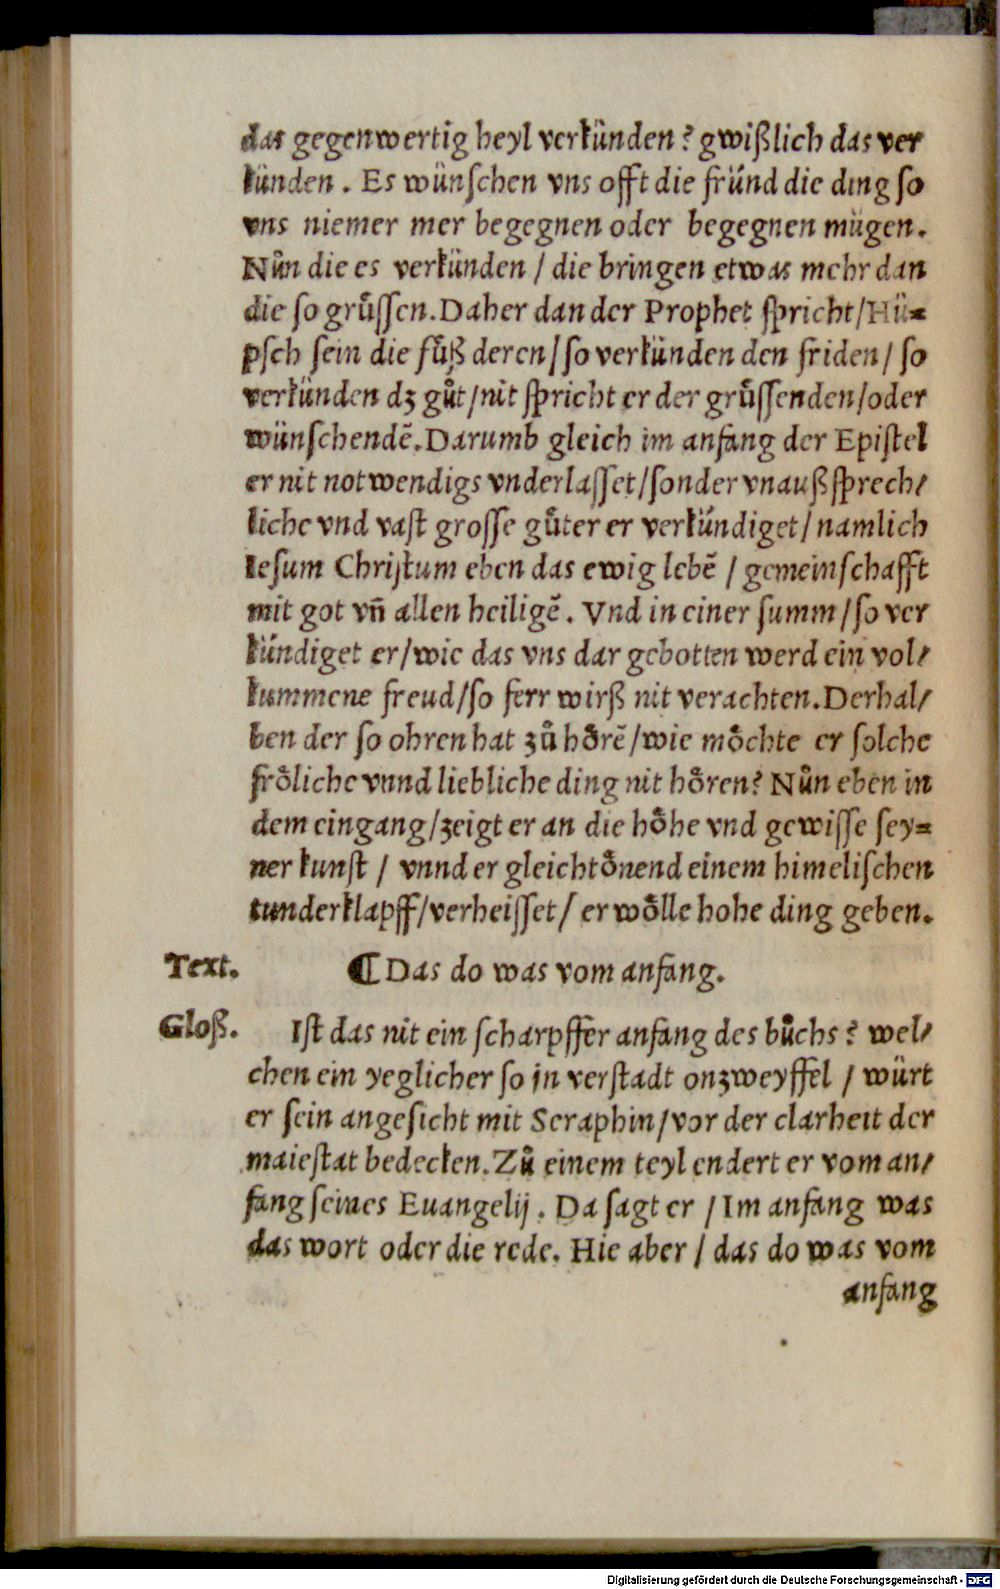 das gegenwertig heyl verkünden? gwißlich das ver
künden. Es wünschen vns offt die fründ die ding so
vns niemer mer begegnen oder begegnen mügen.
Nůn die es verkünden / die bringen etwas mehr dan
die so grůssen. Daher dan der Prophet spricht / Hü=
psch sein die fůß deren / so verkünden den friden / so
verkünden dz gůt / nit spricht er der grůssenden / oder
wünschendē. Darumb gleich im anfang der Epistel
er nit notwendigs vnderlasset / sonder vnaußsprech/
liche vnd vast grosse gůter er verkündiget / namlich
Iesum Christum eben das ewig lebē / gemeinschafft
mit got vñ allen heiligē. Vnd in einer summ / so ver
kündiget er / wie das vns dar gebotten werd ein vol/
kummene freud / so ferr wirß nit verachten. Derhal/
ben der so ohren hat zů hoͤrē / wie moͤchte er solche
froͤliche vnnd liebliche ding nit hoͤren? Nůn eben in
dem eingang / zeigt er an die hoͤhe vnd gewisse sey=
ner kunst / vnnd er gleichtoͤnend einem himelischen
tunderklapff / verheisset / er woͤlle hohe ding geben.
Text. ¶ Das do was vom anfang.
Gloß. Ist das nit ein scharpffer anfang des bůchs? wel/
chen ein yeglicher so jn verstadt onzweyffel / würt
er sein angesicht mit Seraphin / vor der clarheit der
maiestat bedecken. Zů einem teyl endert er vom an/
fang seines Euangelij. Da sagt er / Im anfang was
das wort oder die rede. Hie aber / das do was vom
anfang
Digitalisierung gefördert durch die Deutsche Forschungsgemeinschaft - DFG